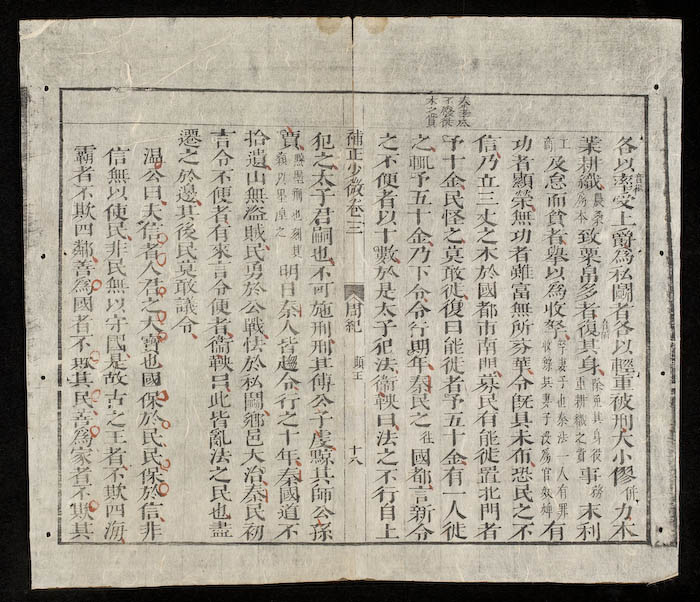 秦孝公
不廢徙
木之賞
各以率音律受上爵為私鬭者各以輕重被刑大小僇併力本
業耕織農桑為本致粟帛多者復其身除免其身復重耕織之賞事務末利
工商及怠而貧者舉以為收孥孥妻子也秦法一人有罪收錄其妻子沒為官奴婢有
功者顯榮無功者雖富無所芬華令既具未布恐民之不
信乃立三丈之木於國都市南門募民有能徙置北門者
予十金民怪之莫敢徙復曰能徙者予五十金有一人徙
之輒予五十金乃下令令行期年秦民之往國都言新令
之不便者以十數於是太子犯法衛鞅曰法之不行自上
補正少微卷三 周紀 顯王 十八
犯之太子君嗣也不可施刑刑其傅公子虔黥其師公孫
賈黥墨刑也刻其顙以墨涅之明日秦人皆趨令行之十年秦國道不
拾遺山無盜賊民勇於公戰怯於私鬭鄉邑大治秦民初
言令不便者有來言令便者衛鞅曰此皆亂法之民也盡
遷之於邊其後民莫敢議令
溫公曰夫信者人君之大寶也國保於民民保於信非
信無以使民非民無以守國是故古之王者不欺四海
霸者不欺四鄰善為國者不欺其民善為家者不欺其